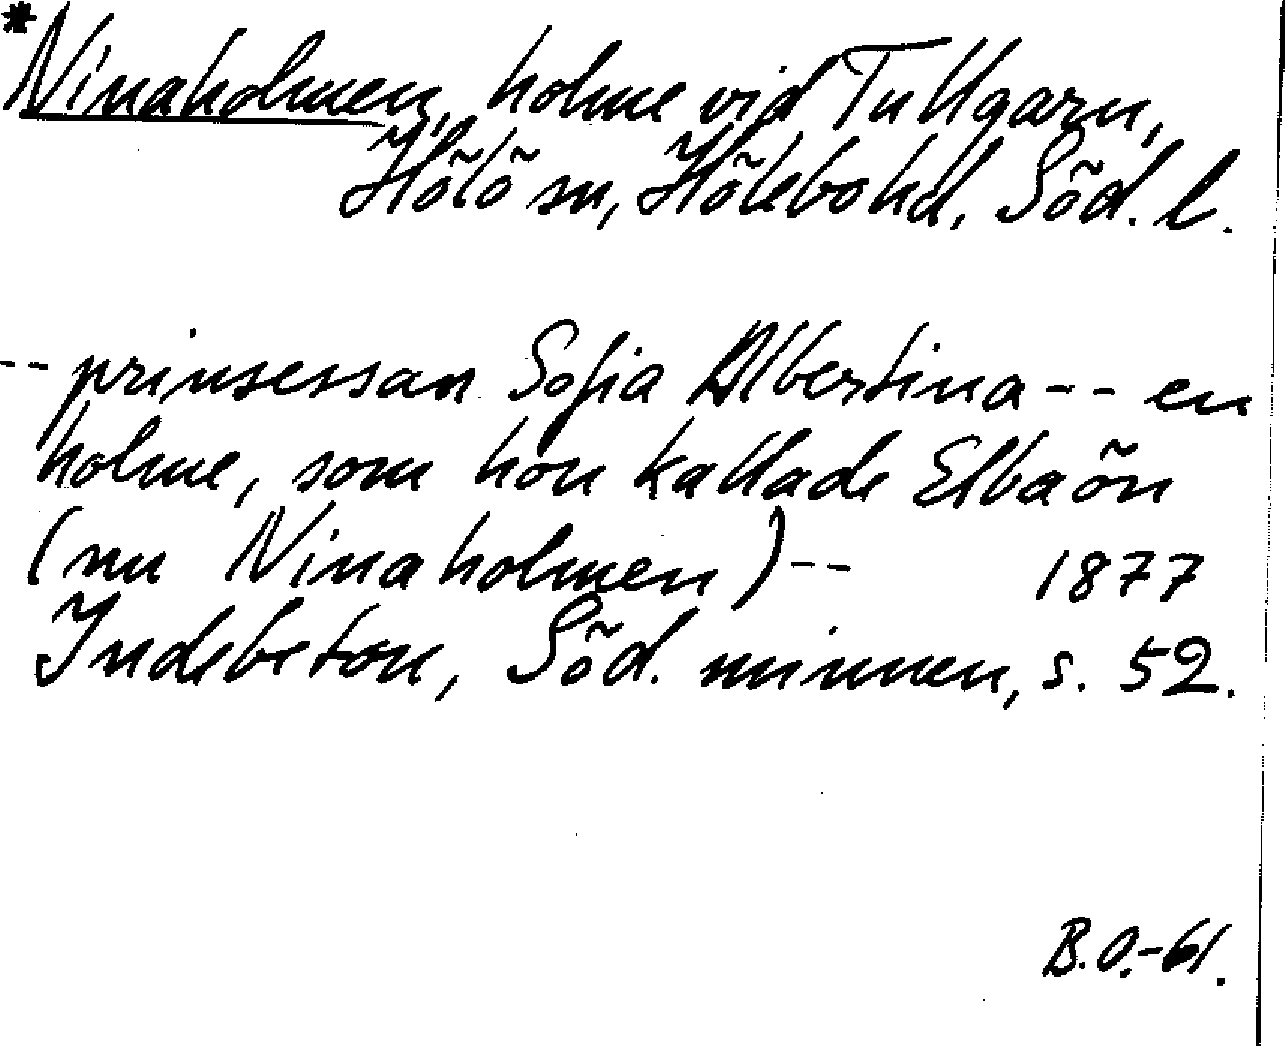 *Ninaholmen, holme vid Tullgarn,
Hölö sn, Hölebo hd, Söd. l.
-- prinsessan Sofia Albertina -- en
holme, som hon kallade Elbaön
(nu Ninaholmen) -- 1877
Indebetou, Söd. minnen, s. 52.
B.O.-61.